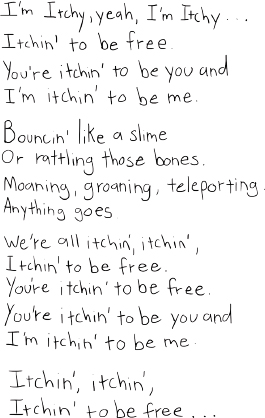 I'm Itchy, yeah, I'm Itchy...
Itchin' to be free.
You're itchin' to be you and
I'm itchin' to be me.
Bouncin' like a slime
Or rattling those bones.
Moaning, groaning, teleporting.
Anything goes
We're all itchin', itchin',
Itchin' to be free.
You're itchin' to be free.
You're itchin' to be you and
I'm itchin' to be me.
Itchin', itchin',
Itchin' to be free...